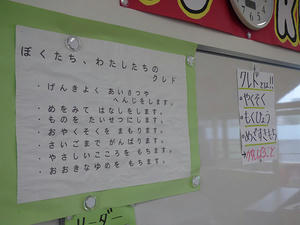 ぼくたち、わたしたちの
クレド
・げんきよく あいさつや
へんじをします。
・めをみて はなしをします。
・ものを たいせつにします。
・おやくそくを まもります。
・さいごまで がんばります。
・やさしいこころを もちます。
・おおきなゆめを もちます。
クレドとは!!
・やくそく
・もくひょう
・めざすきもち
リーダー